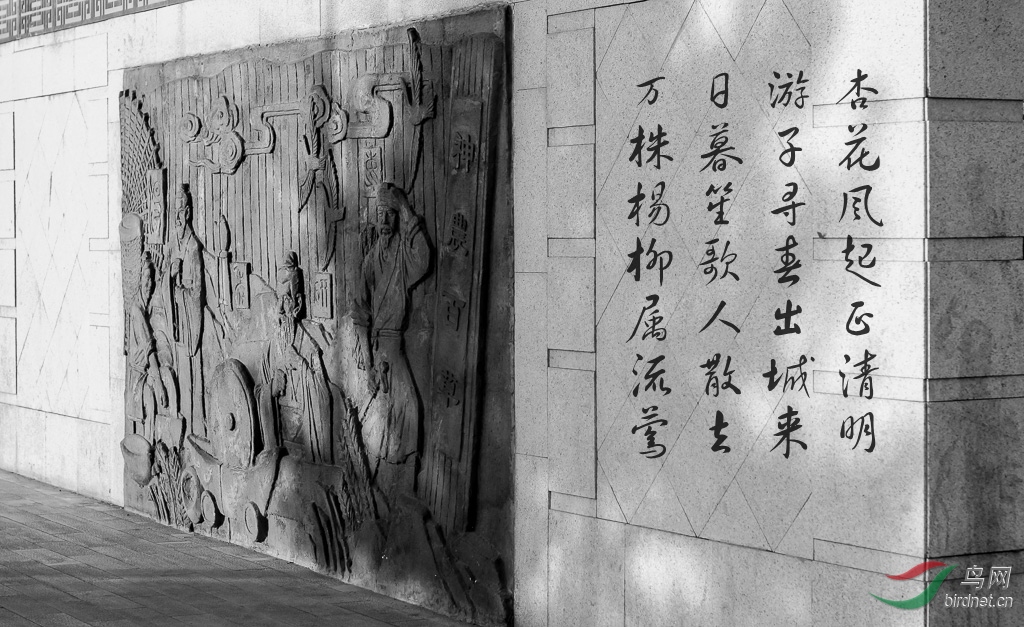 杏花风起正清明
游子寻春出城来
日暮笙歌人散去
万株杨柳属流莺
神农百
鸟网
birdnet.cn